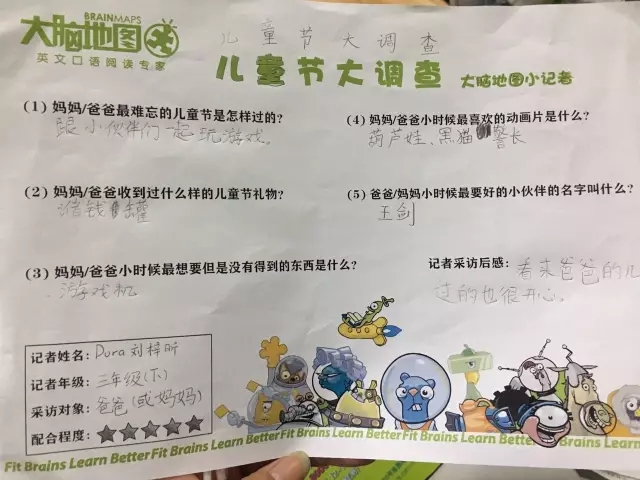 BRAINMAPS
大脑地图
英文口语阅读专家
儿童节大调查
儿童节大调查
大脑地图小记者
(1) 妈妈/爸爸最难忘的儿童节是怎样过的?
跟小伙伴们一起玩游戏。
(2) 妈妈/爸爸收到过什么样的儿童节礼物?
储钱罐
(3) 妈妈/爸爸小时候最想要但是没有得到的东西是什么?
游戏机
(4) 妈妈/爸爸小时候最喜欢的动画片是什么?
葫芦娃、黑猫警长
(5) 爸爸/妈妈小时候最要好的小伙伴的名字叫什么?
王剑
记者采访后感: 看来爸爸的儿
过的也很开心。
记者姓名: Dora 刘梓昕
记者年级: 三年级(下)
采访对象: 爸爸(或妈妈)
配合程度:
Fit Brains Learn Better Fit Brains Learn Better Fit Brains Learn Better Fit Brains Learn Better Fit Brains Learn Better